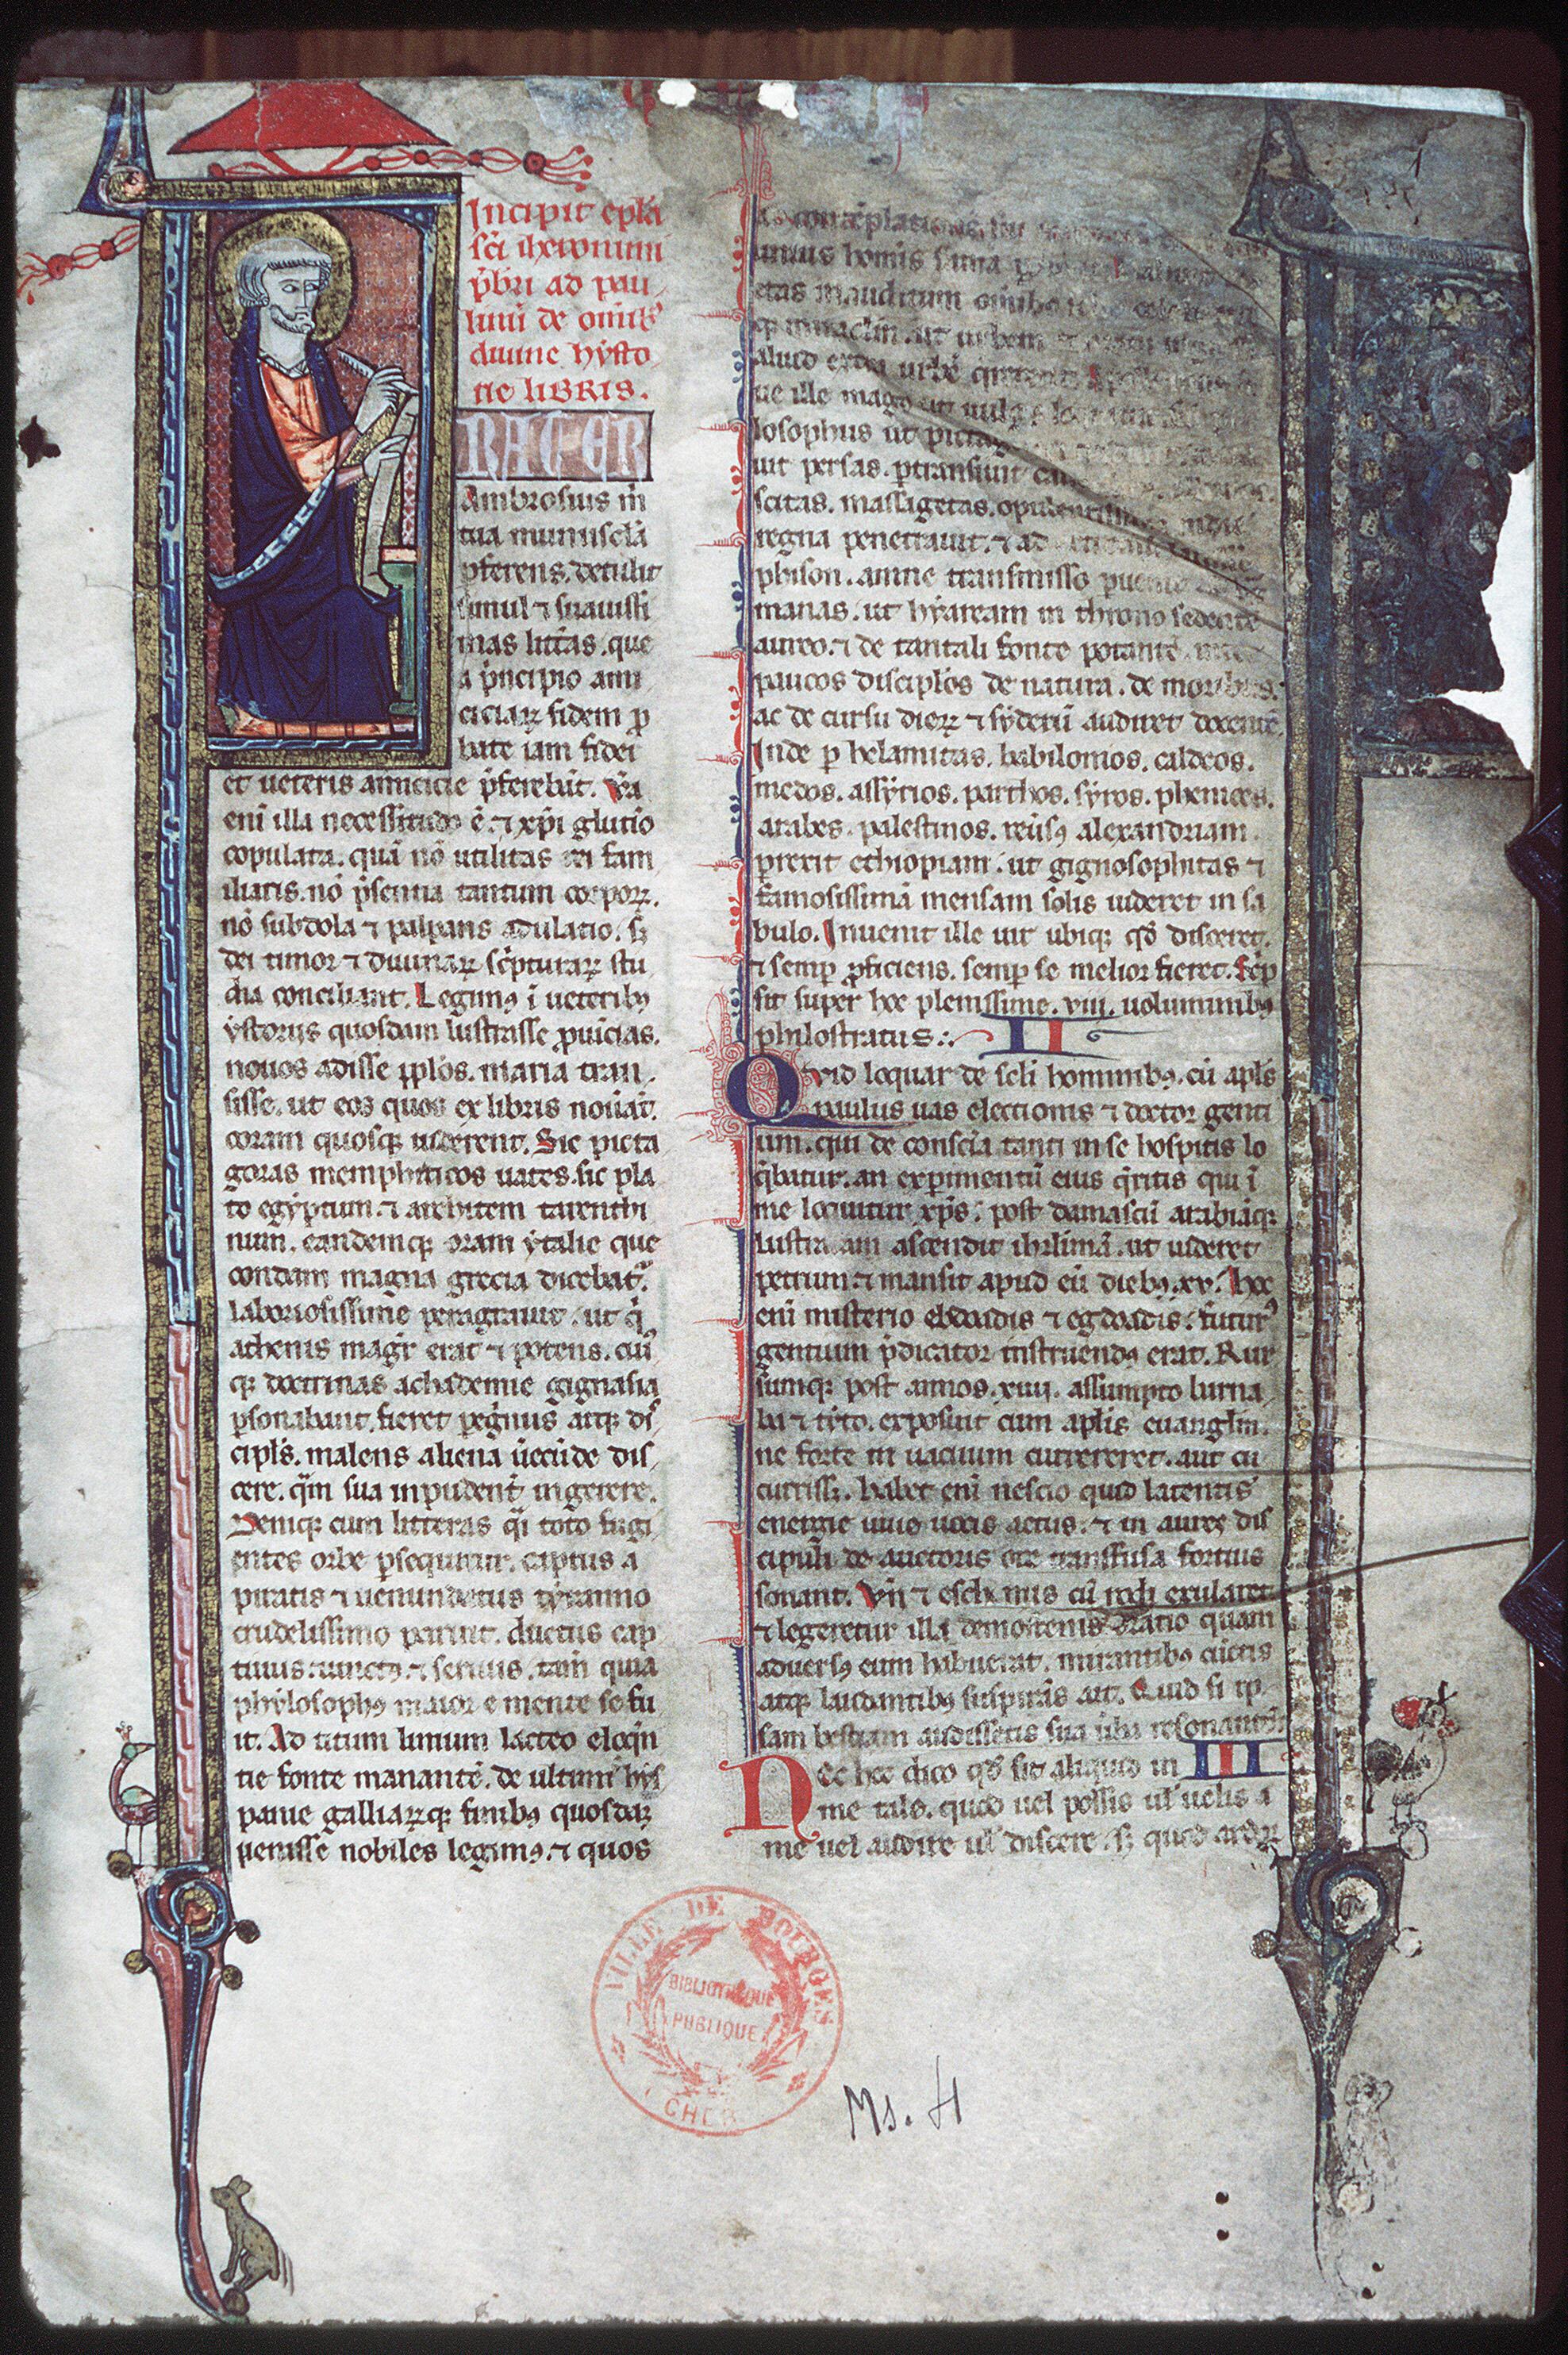 Incipit ep̄la
sc̄i iheronimi
p̄bri ad pau
linū de om̄ib3
diuine hÿsto
rie LIBRIS.
RATER
Ambrosius m̄
tua munuscl̄a
p̄ferens. detulit
simul ⁊ suauissi
mas litt̄as. que
a p̄ncipio ami
ciciaꝝ fidem ꝓ
bate iam fidei
et ueteris amicicie p̄ferebāt. Vā
eni illa necessitudo ē. ⁊ xp̄i glutīo
copulata. quā nō utilitas rei fam
iliaris. nō p̄sentia tantum corpoꝝ.
nō subdola ⁊ palpans adulatio. s;
dei timor ⁊ diuinaꝝ sc̄pturaꝝ stu
dia conciliant. Legimꝰ ī ueteribꝰ
ÿstoriis quosdam lustrasse ꝓuīcias.
nouos adisse ꝓplōs. maria tran
sisse. ut eos quos ex libris nouāt.
coram quosqꝫ uiderent. Sic picta
goras memphiticos uates. sic pla
to egÿptum. ⁊ architem tarenthi
num. eandemqꝫ oram ÿtalie que
condam magna grecia dicebat̄.
laboriosissime peragrauit. ut q̄
athenis maḡr erat ⁊ potens. cuiꝰ
qꝫ doctrinas achademie gignasia
ꝑsonabant. fieret peg̊nus atqꝫ dis
cipl̄s. malens aliena ūecūde dis
cere. q̄m sua inpudent̄ ingerere.
Deniqꝫ cum litteras q̄i toto fugi
entes orbe ꝑsequitur. captus a
piratis ⁊ uenundatus tÿranno
crudelissimo paruit. ductus cap
tiuus uinctꝰ. ⁊ seruus. tam̄ quia
phÿlosophꝰ maior emente se fu
it. Ad titum liuium lacteo eloq̄n
tie fonte manantē. de ultimī hÿs
panie galliaꝝqꝫ finibꝰ quosdaꝫ
uenisse nobiles legimꝰ. ⁊ quos
unius homis
aliud extra urbē
ue ille mag
losophus ut picta
uit persas. ꝑtransiuit
scitas. massagetas. opulentissima indie
regna penetrauit. ⁊ ad
phison. amne transmisso
manas. ut hÿarcam in throno sedentē
aureo. ⁊ de tantali fonte potantē.
paucos discipl̄os de natura. de moribus.
ac de cursu dieꝝ ⁊ sÿderū audiret docentē.
Inde ꝑ helamitas. babilonios. caldeos.
medos. assÿrios. parthos. sÿros. phenices.
arabes. palestinos. reūsꝰ alexandriam
ꝑrexit ethiopiam. ut gignosophitas ⁊
famosissimā mensam solis uideret in sa
bulo. Inuenit ille uir ubiqꝫ qd̄ disceret.
⁊ semꝑ ꝓficiens. semꝑ se melior fieret. Sc̄p
sit super hoc plenissime. viii. uoluminibꝰ
philostratus. II
QVid loquar de sc̄li hominibꝰ. cū apl̄s
paulus uas electionis ⁊ doctor genti
um. qui de conscīa tanti in se hospitis lo
q̄batur. an exꝑimentū eius q̄ritis qui ī
me loquitur xp̄s. post damascū arabiāqꝫ
lustratam ascendit ihrlimā. ut uideret
petrum. ⁊ mansit apud eū diebꝰ. xv. Hoc
eni misterio ebdoadis ⁊ egdoadis. futurꝰ
gentium p̄dicator instruendꝰ erat. Rur
sumqꝫ post annos. xiiii. assumpto barna
ba ⁊ tÿto. exposuit cum apl̄is euanglm̄.
ne forte in uacuum curreret. aut cu
currisset. habet eni nescio quid latentis
energie uiue uocis actus. ⁊ in aures dis
cipuli de auctoris ore transfusa fortius
sonant. Vn̄ ⁊ eschinius cū rodi exularet
⁊ legeretur illa demostenis oratio quam
aduersꝰ eum habuerat. mirantibꝰ cūctis
atqꝫ laudantibꝰ suspirās ait. Quid si ip
sam bestiam audissetis sua ūba resonantē.
NEc hoc dico qd̄ sit aliquid in III
me tale. quod uel possis ul̄ uelis a
me uel audire ul̄ discere. s; quod ardor
VILLE DE BOURGES
BIBLIOTHEQUE
PUBLIQUE
CHER
Ms. 4